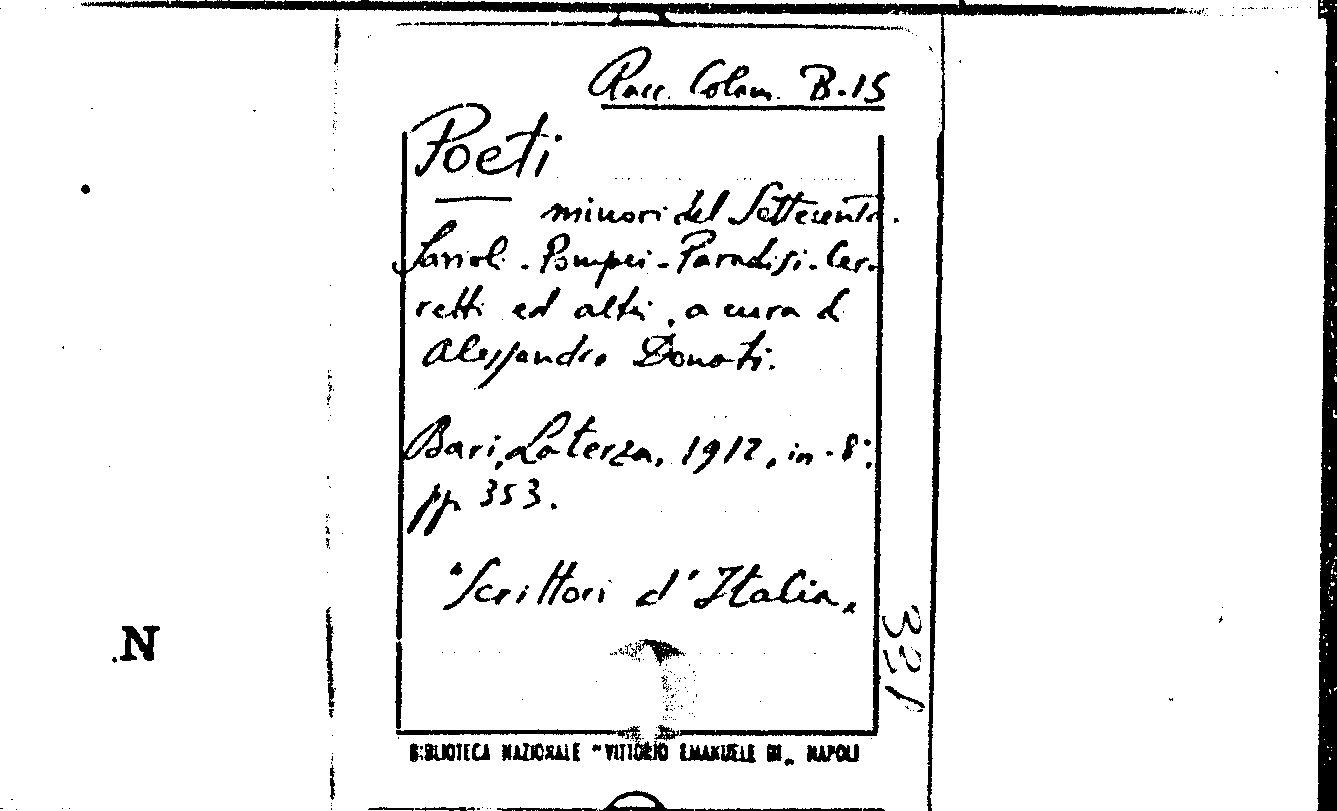 Racc. Colam. B-15
Poeti
minori del Settecento.
Savioli - Pompei - Paradisi - Cer-
retti ed altri, a cura di
Alessandro Donati.
Bari, Laterza, 1912, in-8°,
pp. 353.
"Scrittori d'Italia„
321
N
BIBLIOTECA NAZIONALE "VITTORIO EMANUELE III„ NAPOLI